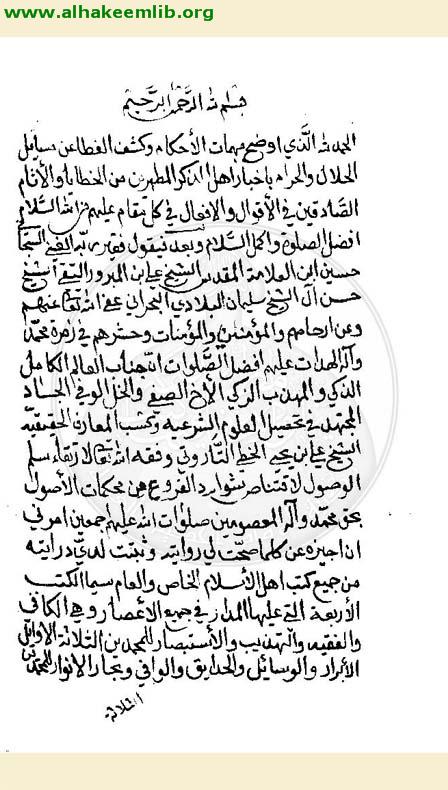 www.alhakeemlib.org
بسم الله الرحمن الرحيم
الحمد لله الذي اوضح مبهمات الأحكام وكشف الغطا عن مسايل
الحلال والحرام باخبار اهل الذكر المطهرين من الخطايا والأثام
الصادقين في الأقوال والافعال في كل مقام عليهم من الله السلام
افضل الصلوة واكمل السلام وبعد فيقول فقير ربه الغني
حسين ابن العلامة المقدس الشيخ علي بن المبرور التقي الشيخ
حسن آل الشيخ سليمان البلادي البحراني عفى الله تعا عنهم
وعن ارحامهم والمؤمنين والمؤمنات وحشرهم في زمرة محمد
وآله الهداة عليهم افضل الصلوات ان جناب العالم الكامل
الذكي والمهذب الزكي الأخ الصفي والخل الوفي الجاد
المجتهد في تحصيل العلوم الشرعيه وكسب المعارف الحقيقيه
الشيخ علي بن يحيى الخطي التاروتي وفقه الله تعا لارتقاء سلم
الوصول لاقتناص شوارد الفروع من محكمات الأصول
بحق محمد وآله المعصومين صلوات الله عليهم اجمعين امرني
ان اجيزه عن كلما صحت لي روايته وثبتت لدي درايته
من جميع كتب اهل الأسلام الخاص والعام سيما الكتب
الأربعة التي عليها المدار في جميع الاعصار وهي الكافي
والفقيه والتهذيب والأستبصار للمحمدين الثلاثة الأوائل
الأبرار والوسائل والحدايق والوافي وبحار الانوار للمحمدين
الثلاثة